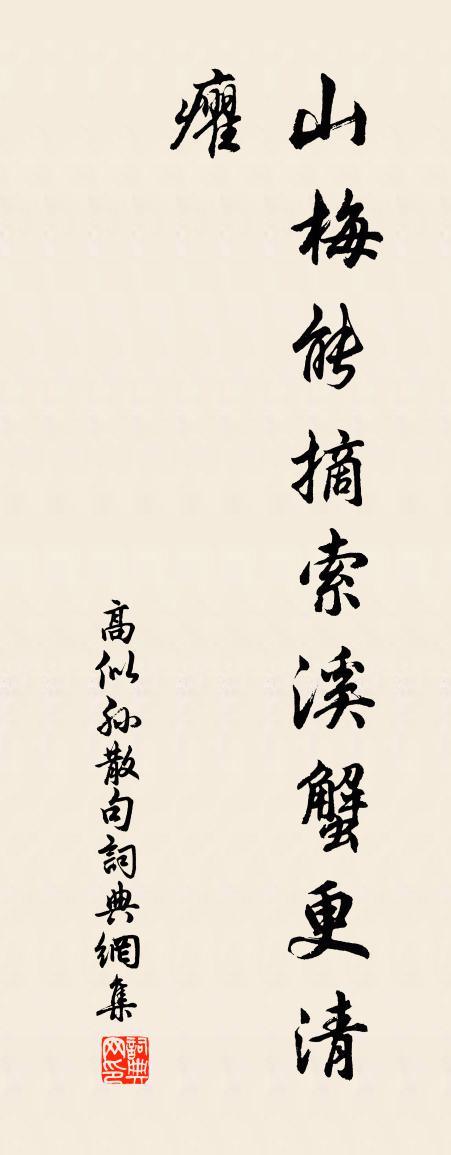 山梅能摘索溪蟹更清
癯
高似孫散句詞典網集
詞典网印